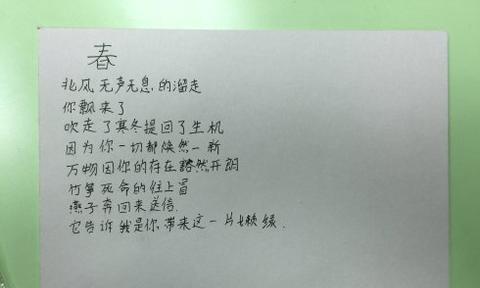 春
北风无声无息的溜走
你飘来了
吹走了寒冬提回了生机
因为你一切都焕然一新
万物因你的存在豁然开朗
竹笋死命的往上冒
燕子奔回来送信.
它告诉我是你带来这一片嫩绿.